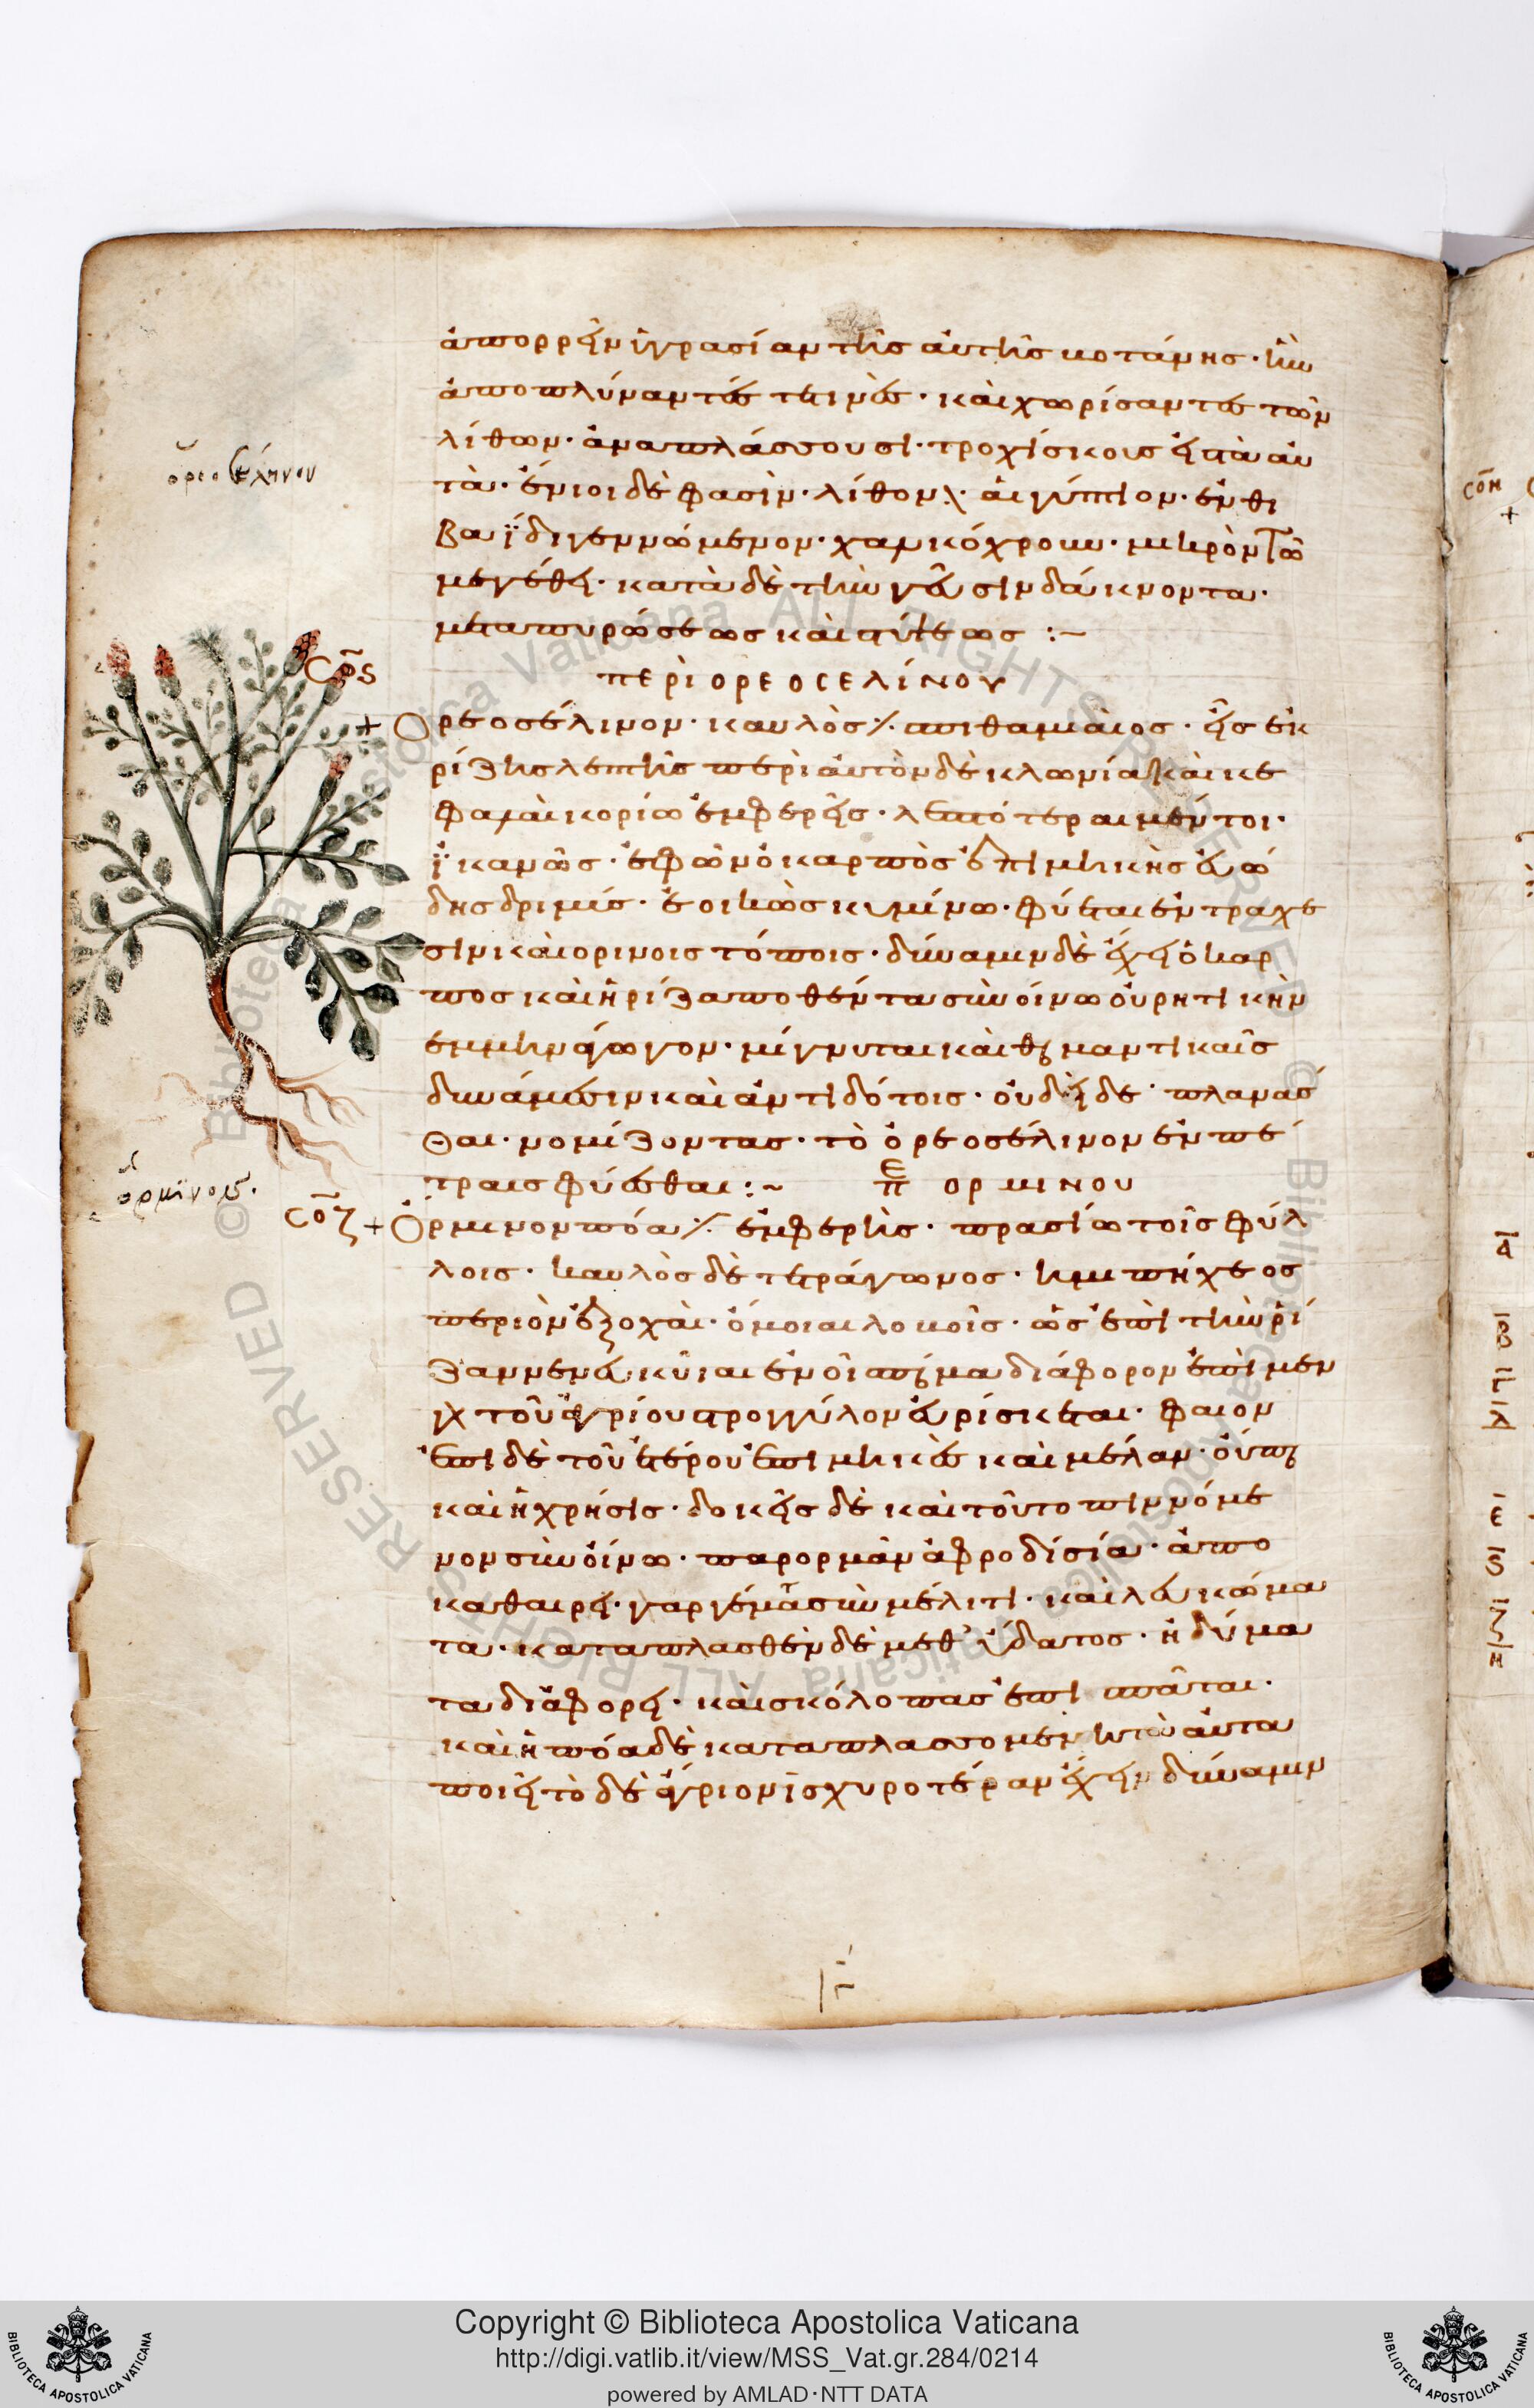 ἀπορρεῖν ὑγρασίαν τῆς αὐτῆς βοτάνης· ἣν
ἀποπλύναντές τινὲς· καὶ χωρίσαντες τῶν
λίθων· ἀναπλάσσουσι· τροχίσκους ἐπὰν αὐ
τὰ· ἔνιοι δὲ φασὶν· λίθον αἰγύπτιον· ἐν θη
βαΐδι γεννώμενον· χαλκόχρουν· μικρὸν τῶ
μεγέθει· κατὰ δὲ τὴν γεῦσιν δάκνοντα·
μετα πυρώσεως καὶ στύψεως :–
ὀρεοσέλινου
περὶ ὀρεοσελίνου
σος
+ Ὀρεοσέλινον· καυλὸς ⁒ σπιθαμιαῖος· εἷς ἐκ
ρίζης λεπτῆς περὶ αὐτὸν δὲ κλωνία καὶ κε
φαλαὶ κορίω ἐμφερεῖς· λεπτότεραι μέντοι·
ἱκανῶς· ἐφ ὧν ὁ καρπὸς ἐπιμήκης εὐώ
δης δριμύς· ἐοικὼς κυμίνω· φύεται ἐν τραχέ
σιν καὶ ὀρινοις τόποις· δύναμιν δὲ ἔχει ὁ καρ
πος καὶ ἡ ρίζα ποθέντα σὺν οἴνω οὐρητικὴν
ἐμμηναγωγον· μίγνυται καὶ θερμαντικαῖς
δυνάμεσιν καὶ ἀντιδότοις· οὐ δεῖ δε πλανᾶσ
θαι· νομίζοντας· τὸ ὀρεοσέλινον ἐν πέ
τραις φύεσθαι :~ πε ορμινου
ὁρμίνου
σοζ
+ Ὅρμινον πόα ⁒ ἐμφερὴς· πρασίω τοῖς φύλ
λοις· καυλὸς δὲ τετράγωνος· ἡμιπήχεος
περι ὃν ἐξοχαὶ· ὅμοιαι λοβοῖς· ὡς ἐπὶ τὴν ῥί
ζαν νενευκυῖαι ἐν οἷ σπέρμα διάφορον ἐπὶ μεν
γὰρ τοῦ ἀγρίου στρογγύλον εὑρίσκεται· φαιον
ἐπὶ δὲ τοῦ ἑτέρου ἐπιμηκὲς καὶ μέλαν· οὗπερ
καὶ ἡ χρῆσις· δοκεῖς δὲ καὶ τοῦτο πιννόμε
νον σὺν οἴνω· παρορμᾶν ἀφροδίσία· ἀπο
καθαιρει· γαργέμας σὺν μέλιτι· καὶ λευκώμα
τα· καταπλασθὲν δὲ μεθ' ὕδατος· ἡδύμα
τα διαφορεῖ· καὶ σκόλοπας ἐπισπᾶται·
καὶ ἡ πόα δὲ καταπλασσομένη τὰ αὐτα
ποιεῖ τὸ δὲ ἄγριον ἰσχυροτέραν ἔχειν δύναμιν
Copyright © Biblioteca Apostolica Vaticana
http://digi.vatlib.it/view/MSS_Vat.gr.284/0214
powered by AMLAD·NTT DATA
BIBLIOTECA APOSTOLICA VATICANA
BIBLIOTECA APOSTOLICA VATICANA